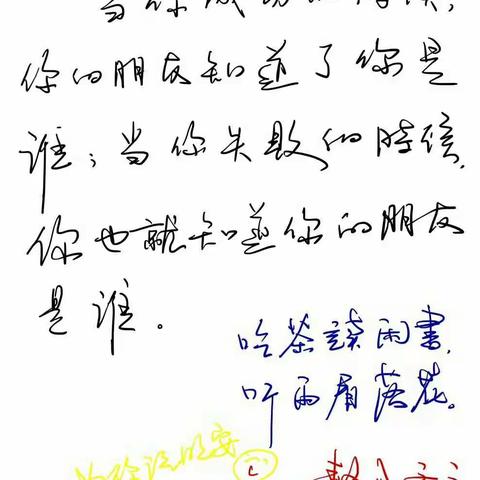 当你成功的时候，
你的朋友知道了你是
谁；当你失败的时候，
你也就知道你的朋友
是谁。
吃茶读闲书，
听雨看落花。